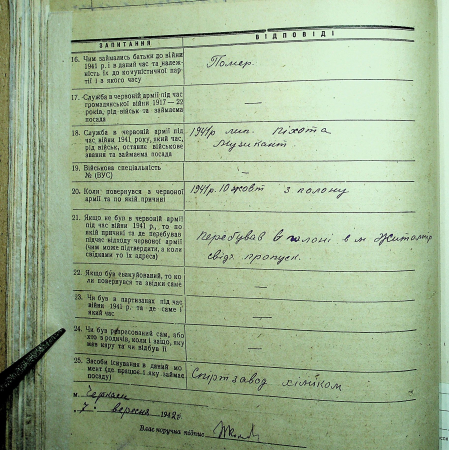 ЗАПИТАННЯ
ВІДПОВІДІ
16. Чим займались батьки до війни
1941 р. і в даний час та належ-
ність їх до комуністичної пар-
тії і в якого часу
Помер.
17. Служба в червоній армії під час
громадянської війни 1917—22
років, рід військ та займаєма
посада
—
18. Служба в червоній армії під
час війни 1941 року, який час,
рід військ, останнє військове
звання та займаєма посада
1941р лип. Піхота
Музикант
19. Військова спеціальність
№ (ВУС)
—
20. Коли повернувся з червоної
армії та по якій причині
1941р. 10 жовт з полону
21. Якщо не був в червоній армії
під час війни 1941 р., то по
якій причині та де перебував
підчас відходу червоної армії
(чим може підтвердити, а коли
свідками то їх адреса)
Перебував в полоні в м Житомир
свідч пропуск.
22. Якщо був евакуйований, то ко-
ли повернувся та звідки саме
—
23. Чи був в партизанах під час
війни 1941 р. та де саме і
який час
—
24. Чи був репресований сам, або
хто з родичів, коли і защо, яку
мав кару та чи відбув її
—
25. Засоби існування в даний мо-
мент (де працює і яку займає
посаду)
Спиртзавод хіміком
м. Черкаси
7. вересня 1942 р.
Власноручна підпис